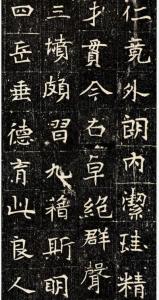 仁竟外朗內潔珪精
才貫今古卓絕群聲
三墳頗習九斯明
四岳垂德育此良人